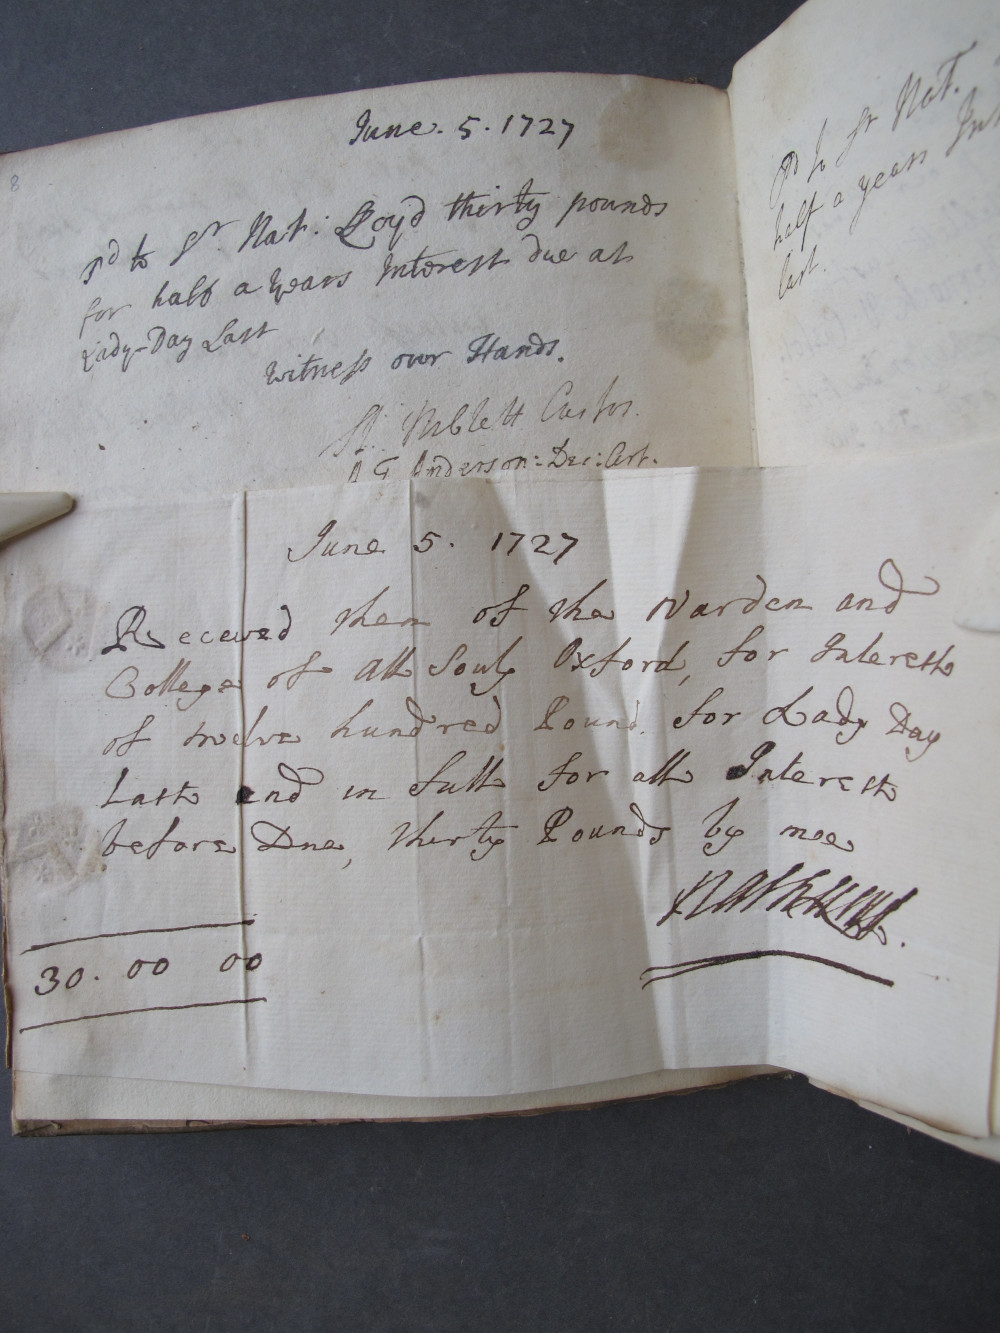 8
June. 5. 1727
Pd to Sr Nat: Lloyd thirty pounds
for half a Years Interest due at
Lady-Day Last
Witness our Hands.
St: Niblett Custos.
Anderson: Dec: Art.
June 5. 1727
Receved then of the Warden and
College of All Souls Oxford, for Interest
of twelve hundred Pound for Lady Day
Last and in full for all Interest
before Due, thirty Pounds by mee
Nath Lloyd.
30. 00 00
Pd to Sr Nat.
half a years Int
last.